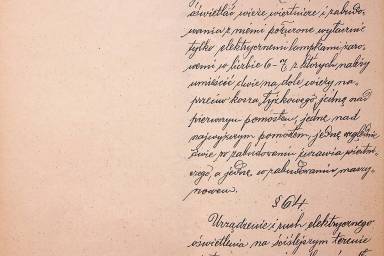 oświetlać wieże wiertnicze i zabudo-
wania z niemi połączone wyłącznie
tylko elektrycznemi lampkami żaro-
wemi w liczbie 6-7, z których należy
umieścić dwie na dole wieży na-
przeciw kosza łyżkowego, jedną nad
pierwszym pomostem, jedną nad
najwyższym pomostem, jedną względnie
dwie w zabudowaniu żurawia wiertni-
czego, a jedną w zabudowaniu maszy-
nowem.
§ 64.
Urządzenie i ruch elektrycznego
oświetlenia na ściślejszym terenie